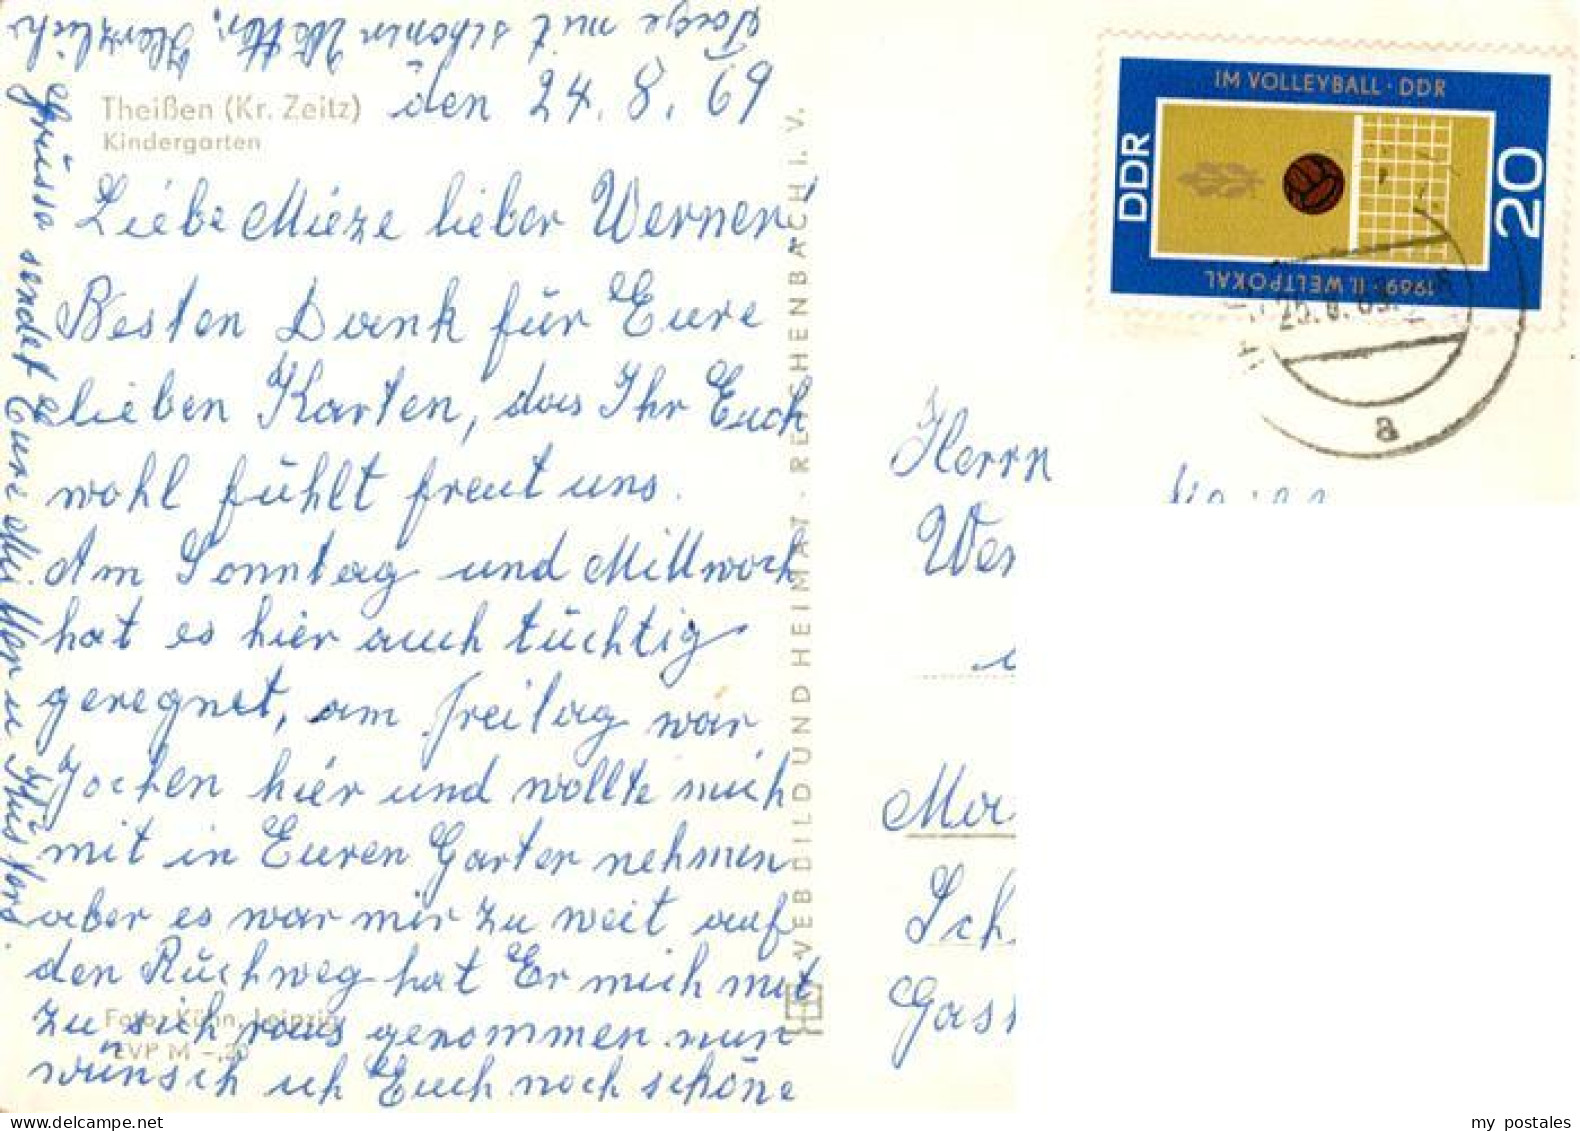 Theißen (Kr. Zeitz)
Kindergarten
den 24. 8. 69
Liebe Mieze lieber Werner!
Besten Dank für Eure
lieben Karten, das Ihr Euch
wohl fühlt freut uns.
Am Sonntag und Mittwoch
hat es hier auch tüchtig
geregnet, am Freitag war
Jochen hier und wollte mich
mit in Euren Garten nehmen
aber es war mir zu weit auf
den Rückweg hat Er mich mit
zu sich raus genommen nun
wünsch ich Euch noch schöne
Tage mit schönen Wetter, Herzliche
Grüsse sendet Eure
Foto: Kühn, Leipzig
EVP M -,20
VEB BILD UND HEIMAT · REICHENBACH I. V.
IM VOLLEYBALL · DDR
DDR
20
1969 · II. WELTPOKAL
a
Herrn
Wer
Ma
Sch
Gast
my postales